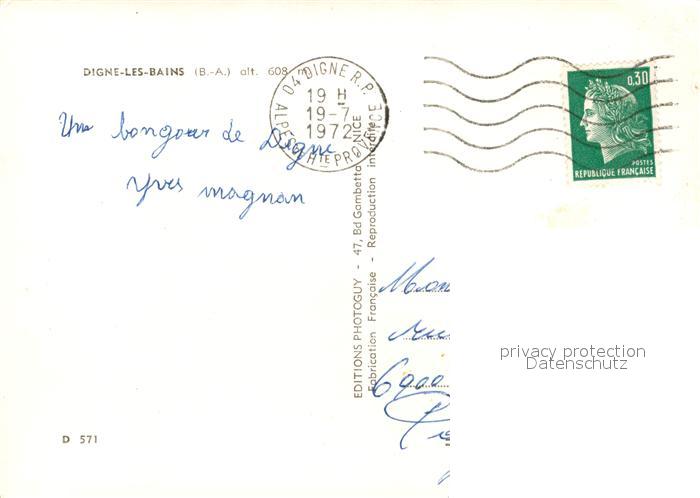 DIGNE-LES-BAINS (B.-A.) alt. 608 m
04 DIGNE R.P.
19 H
19-7
1972
ALPES DE HTE PROVENCE
0,30
POSTES
REPUBLIQUE FRANÇAISE
Un bongour de Digne
Yves magnan
EDITIONS PHOTOGUY - 47, Bd Gambetta - NICE
Fabrication Française - Reproduction interdite
Mon
6900
privacy protection
Datenschutz
D 571